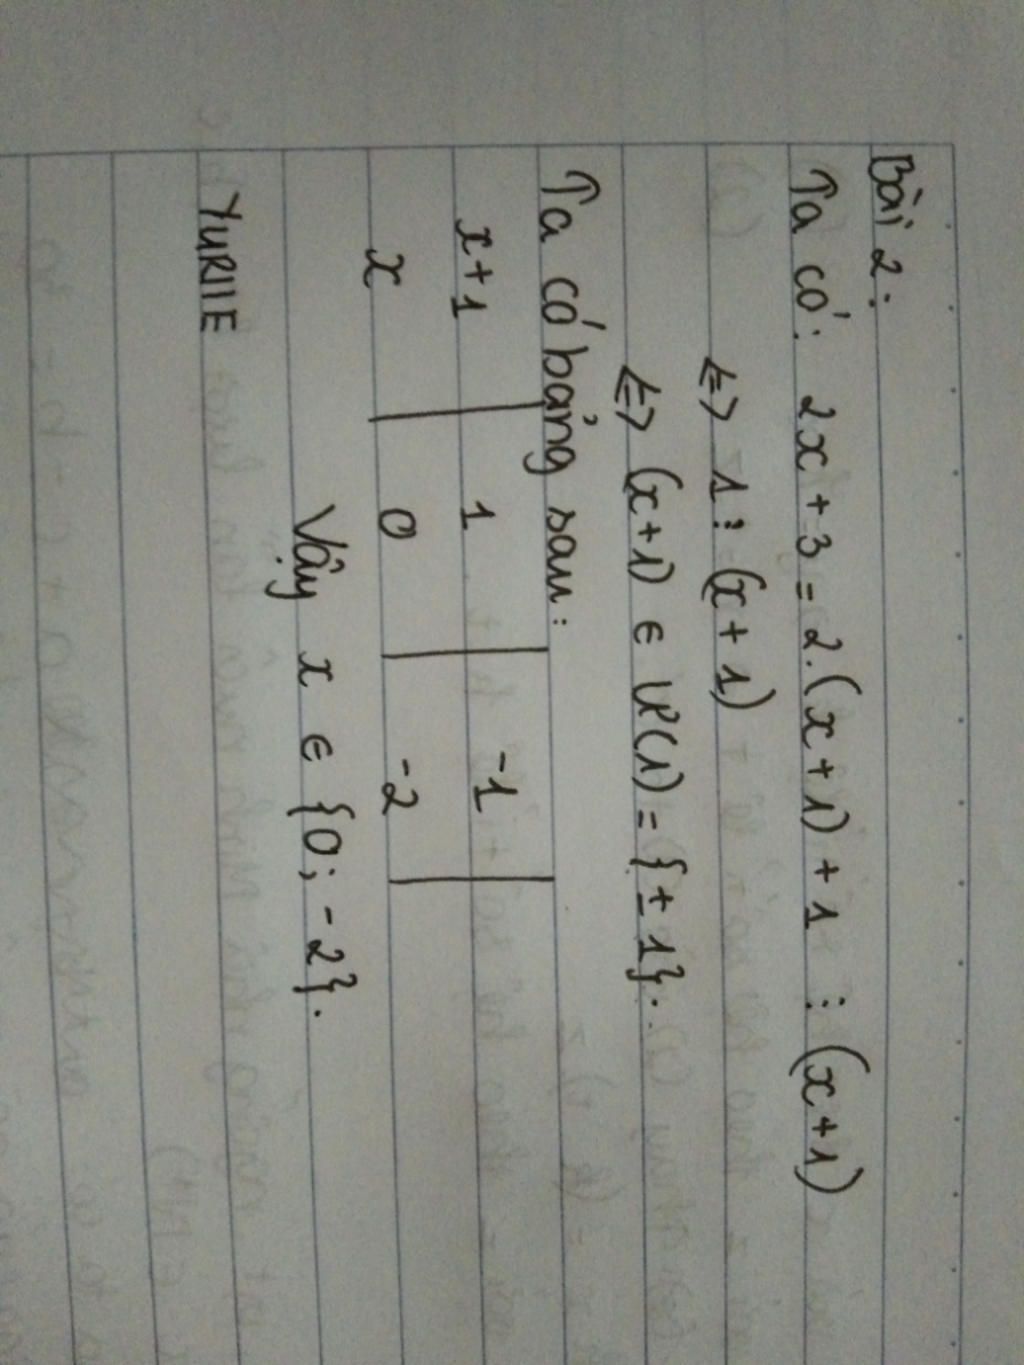 Bài 2:
Ta có: 2x + 3 = 2.(x + 1) + 1 ⋮ (x + 1)
<=> 1 ⋮ (x + 1)
<=> (x+1) ∈ Ư(1) = {± 1}.
Ta có bảng sau:
x+1 1 -1
x 0 -2
Vậy x ∈ {0; -2}.
YURIIE